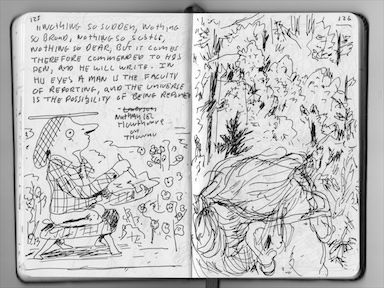 125
"NOTHING SO SUDDEN, NOTHING
SO BROAD, NOTHING SO SUBTLE,
NOTHING SO DEAR, BUT IT COMES
THEREFORE COMMENDED TO HIS
PEN, AND HE WILL WRITE. IN
HIS EYES A MAN IS THE FACULTY
OF REPORTING, AND THE UNIVERSE
IS THE POSSIBILITY OF BEING REPORTED
NATHANIEL
HAWTHORNE
ON
THOREAU
126